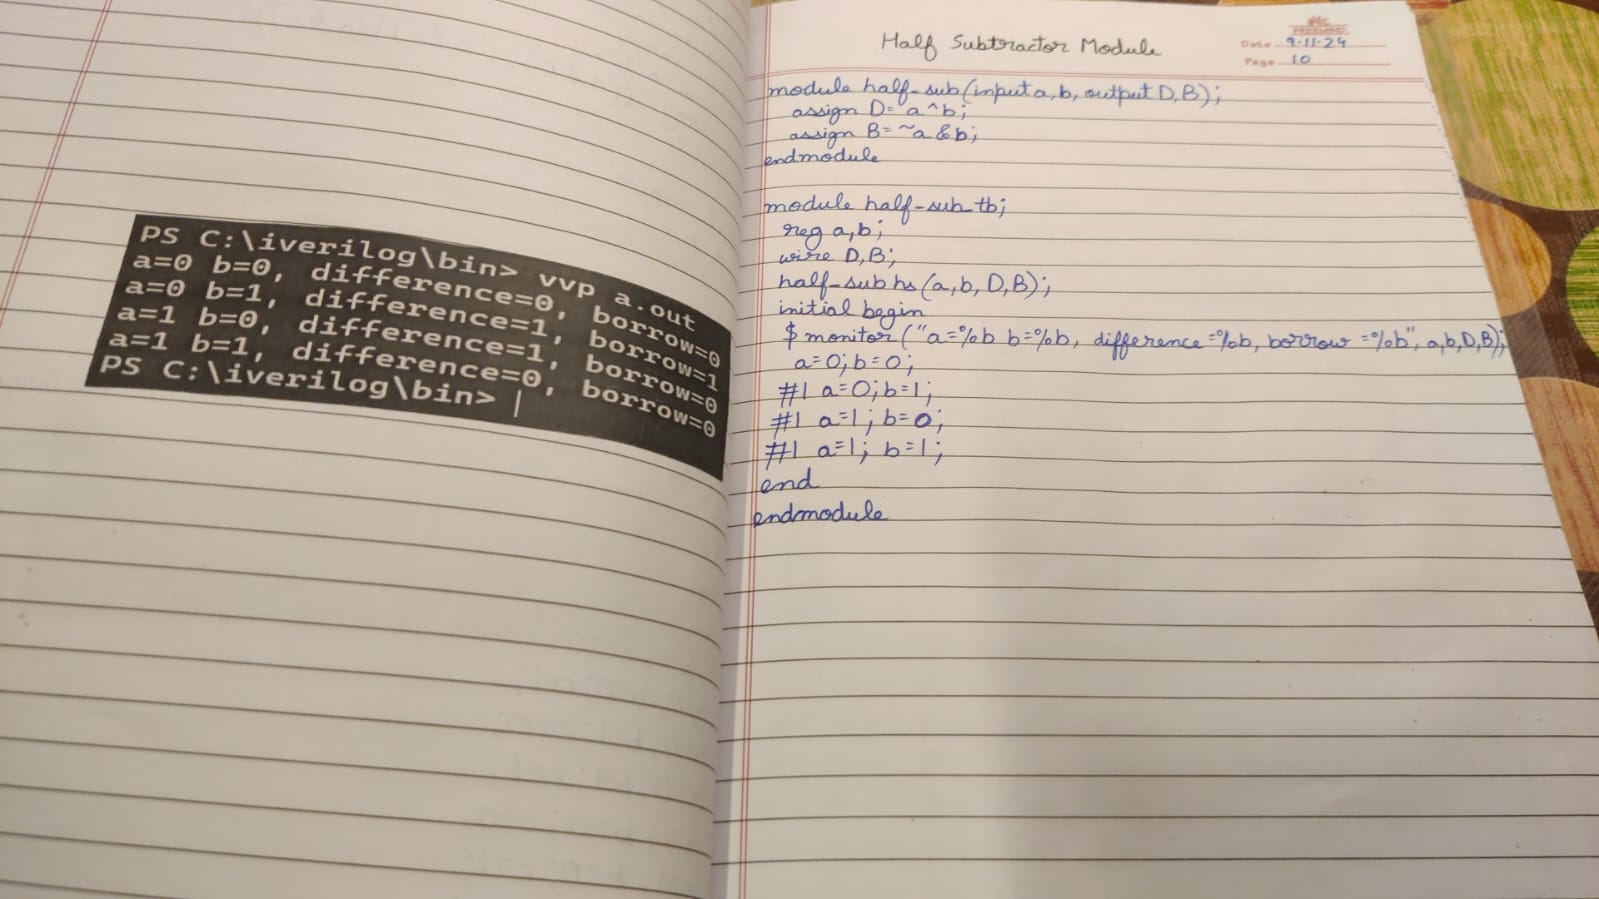 PS C:\iverilog\bin> vvp a.out
a=0 b=0, difference=0, borrow=0
a=0 b=1, difference=1, borrow=1
a=1 b=0, difference=1, borrow=0
a=1 b=1, difference=0, borrow=0
PS C:\iverilog\bin>
Half Subtractor Module
Date 9-11-24
Page 10
module half-sub(input a, b, output D,B);
assign D= a^b;
assign B= ~a &b;
endmodule
module half-sub_tb;
reg a,b;
wire D,B;
half-sub hs(a,b,D,B);
initial begin
$ monitor ("a=%b b=%b, difference=%b, borrow=%b", a,b,D,B);
a=0; b=0;
#1 a=0; b=1;
#1 a=1; b=0;
#1 a=1; b=1;
end
endmodule